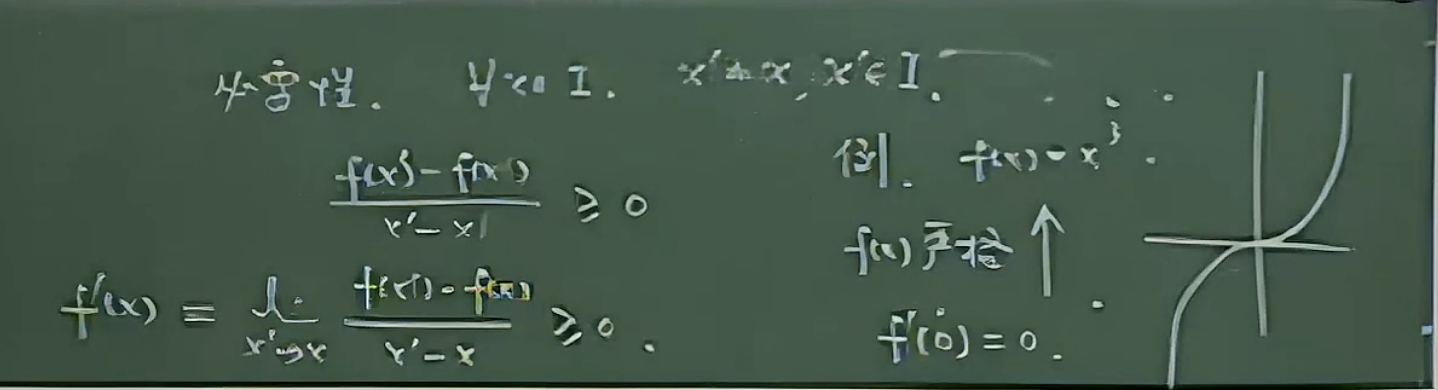 必要性. ∀x∈I. x'≠x, x'∈I.
f(x')-f(x) / x'-x ≥ 0
f'(x) = lim x'→x f(x')-f(x) / x'-x ≥ 0.
例. f(x)=x³.
f(x) 严格 ↑
f'(0)=0.